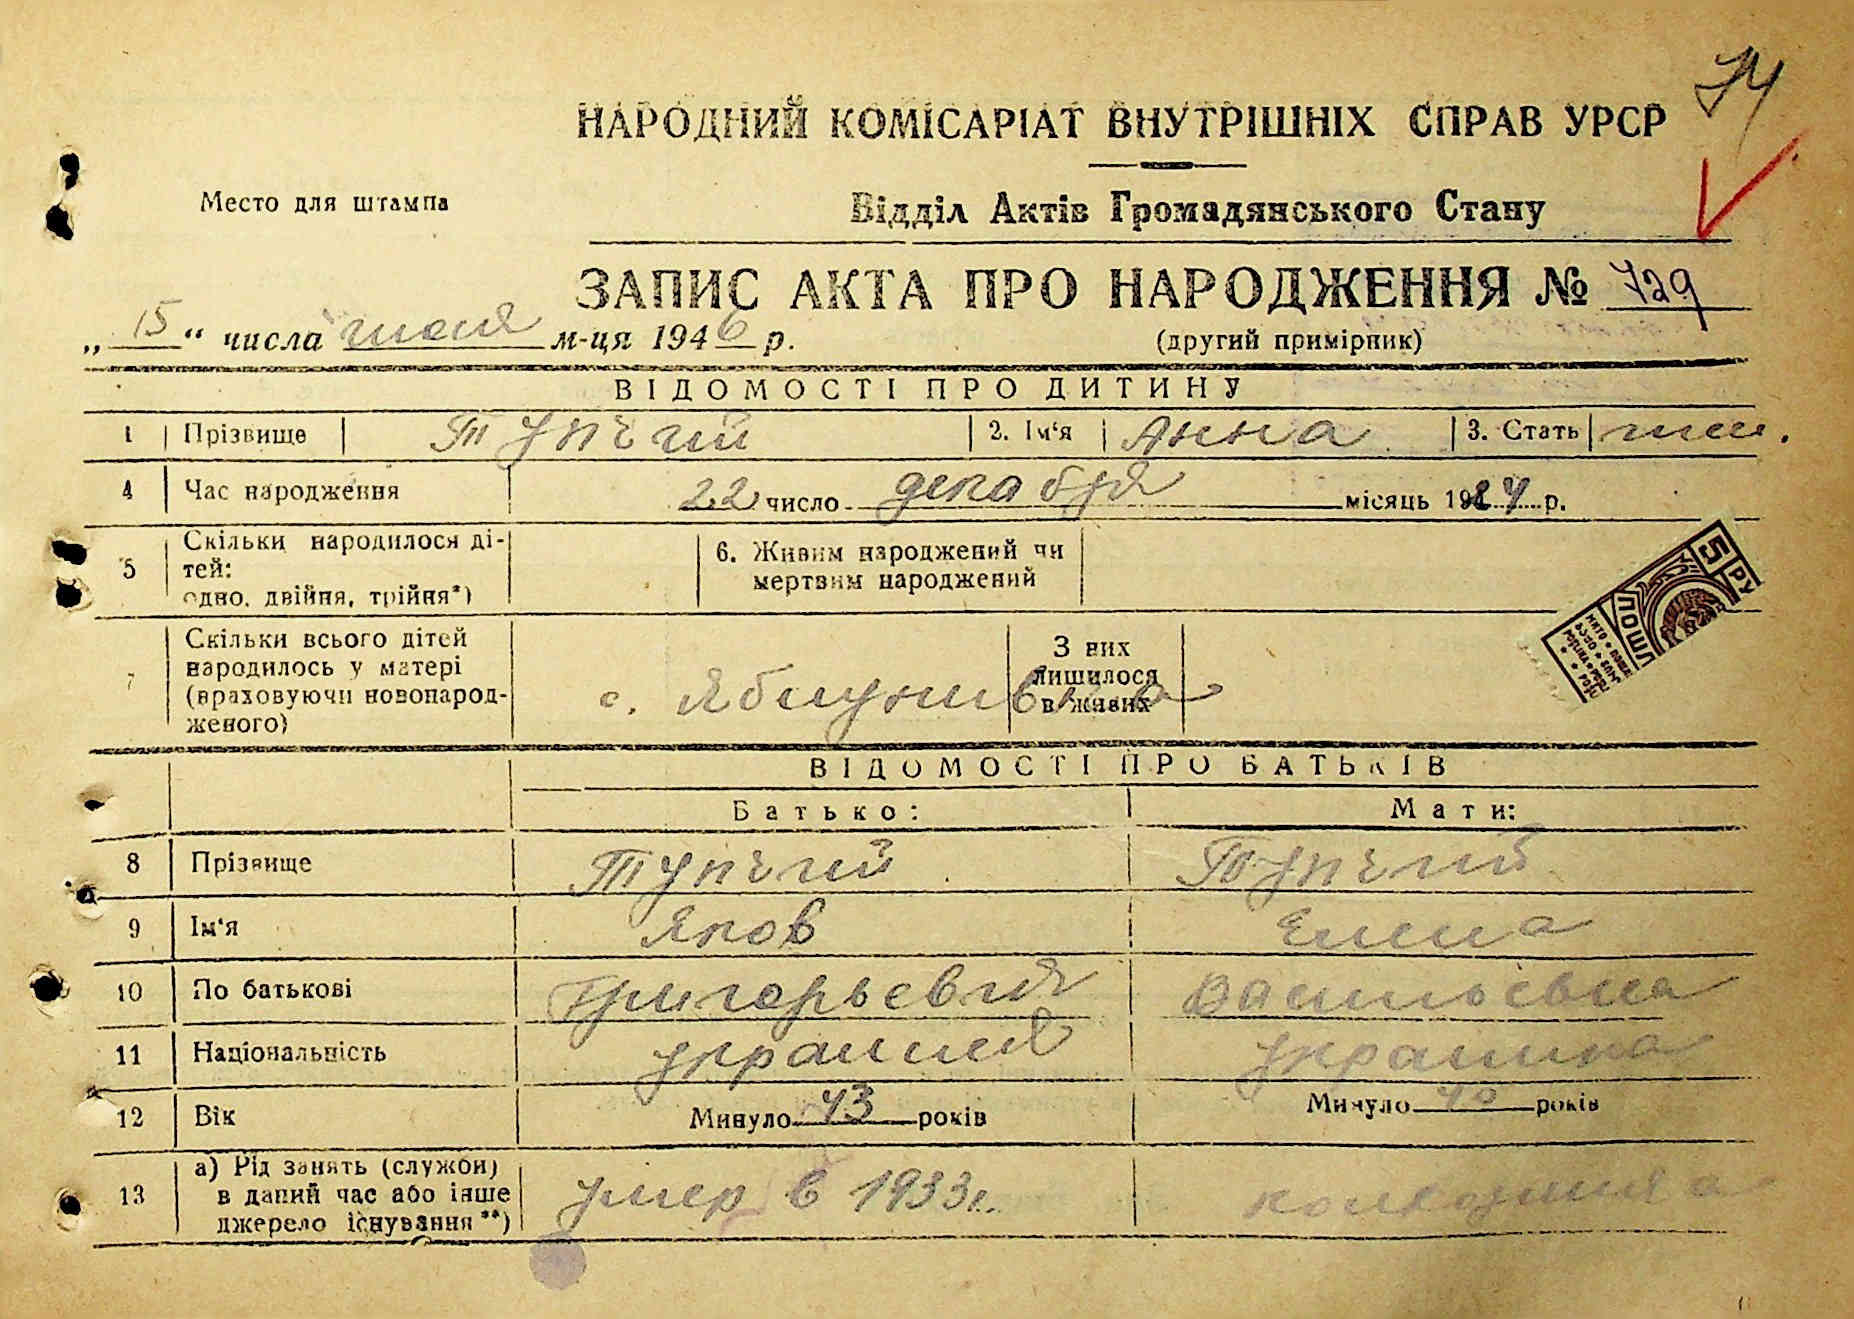 74
НАРОДНИЙ КОМІСАРІАТ ВНУТРІШНІХ СПРАВ УРСР
Место для штампа
Відділ Актів Громадянського Стану
ЗАПИС АКТА ПРО НАРОДЖЕННЯ № 729
„ 15 “ числа июля м-ця 1946 р.
(другий примірник)
ВІДОМОСТІ ПРО ДИТИНУ
1 Прізвище Тупчий 2. Ім'я Анна 3. Стать жен.
4 Час народження 22 число декабря місяць 1924 р.
5 Скільки народилося ді-
тей:
одно, двійня, трійня*)
6. Живим народжений чи
мертвим народжений
7 Скільки всього дітей
народилось у матері
(враховуючи новонарод-
женого)
с. Яблунивка
З них
лишилося
в живих
5 РУ
ПОШЛ
ВІДОМОСТІ ПРО БАТЬКІВ
Батько: Мати:
8 Прізвище Тупчий Тупчий
9 Ім'я Яков Елена
10 По батькові Григорьевич Васильевна
11 Національність украинец украинка
12 Вік Минуло 43 років Минуло 40 років
13 а) Рід занять (служби)
в даний час або інше
джерело існування**)
умер в 1933г. колхозница